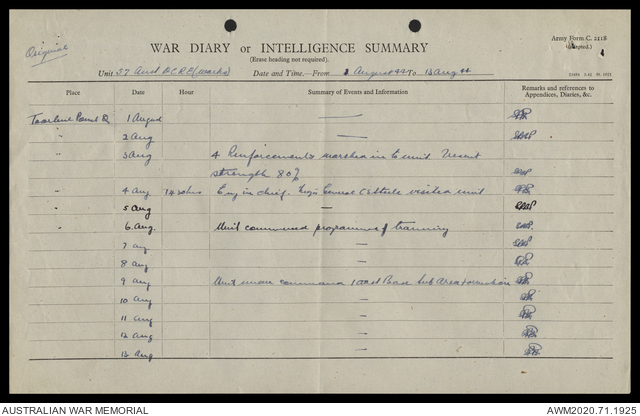 Original
Army Form C. 2118
(Adapted.)
WAR DIARY or INTELLIGENCE SUMMARY
(Erase heading not required).
Unit 57 Aust D.C.R.E (Works) Date and Time.—From 1 August 44 To 13 Aug 44
Place Date Hour Summary of Events and Information Remarks and references to Appendices, Diaries, &c.
Point Q 1 August —
" 2 Aug —
" 3 Aug 4 Reinforcements marched in to unit
strength 80%
" 4 Aug 1430hrs Eng in Chief. visited unit
" 5 Aug —
" 6 Aug. Unit commenced programme of training
7 Aug —
8 Aug —
9 Aug Unit under command Base Sub Area
10 Aug —
11 Aug —
12 Aug —
13 Aug —
AUSTRALIAN WAR MEMORIAL AWM2020.71.1925